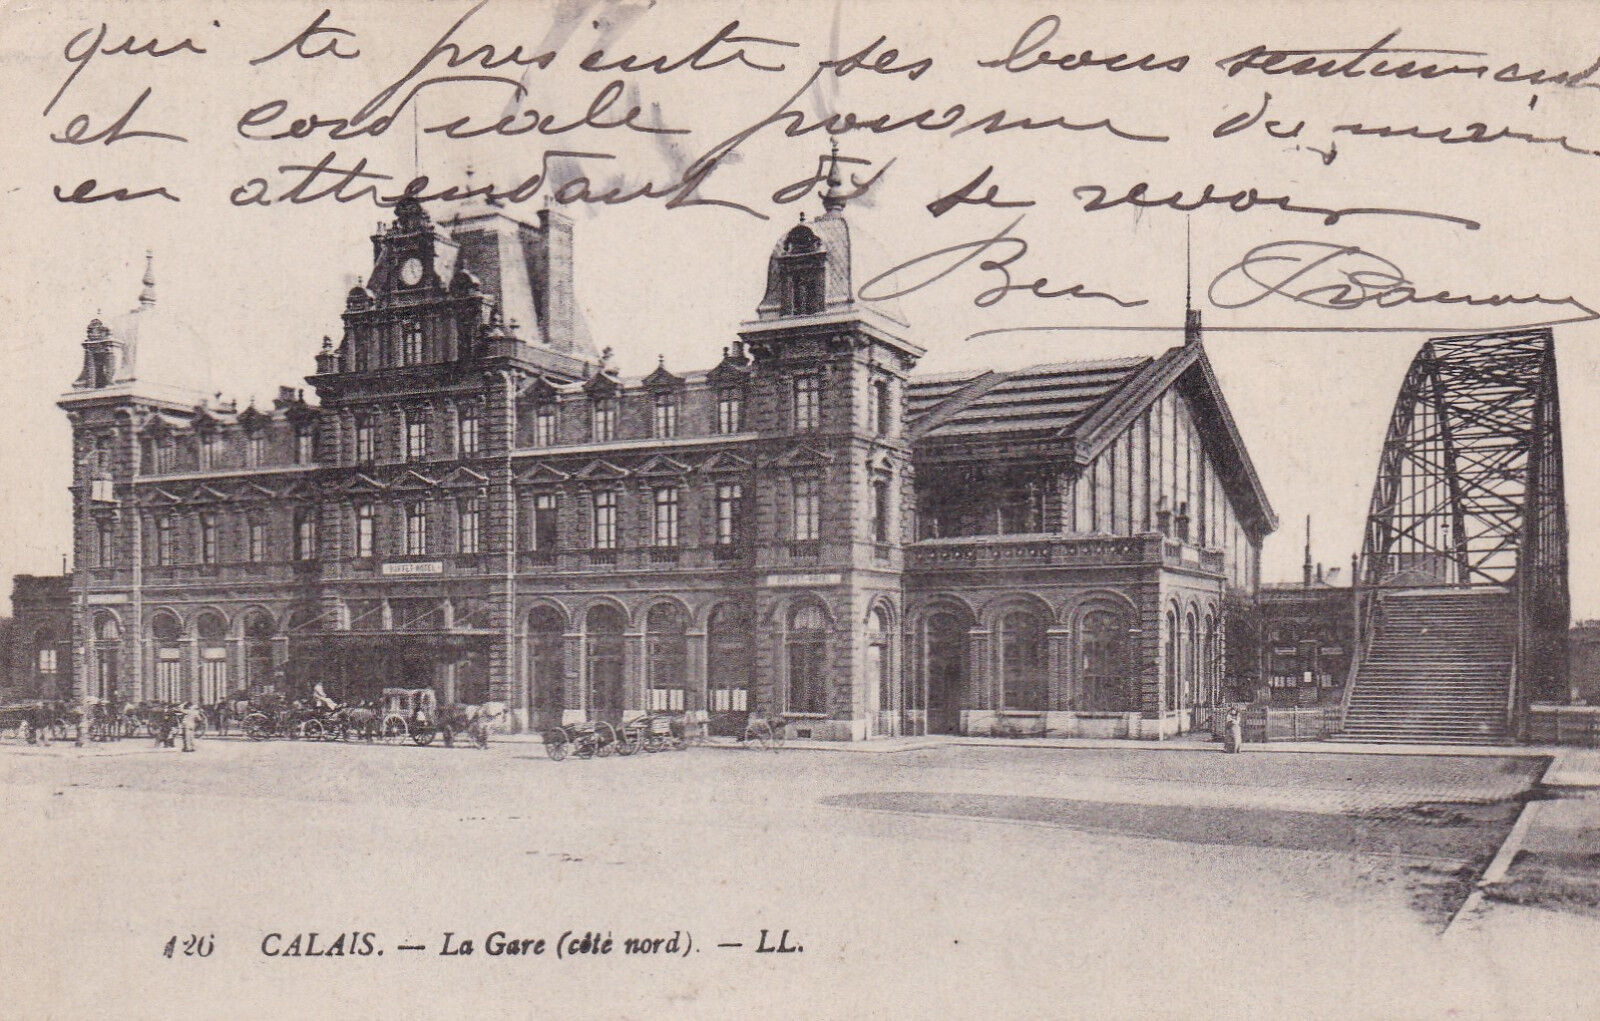 qui te présente ses bons sentiments
et cordiale poignée de main
en attendant de se revoir
Ben
BUFFET-HOTEL
BUFFET-HOTEL
126 CALAIS. — La Gare (côté nord). — LL.